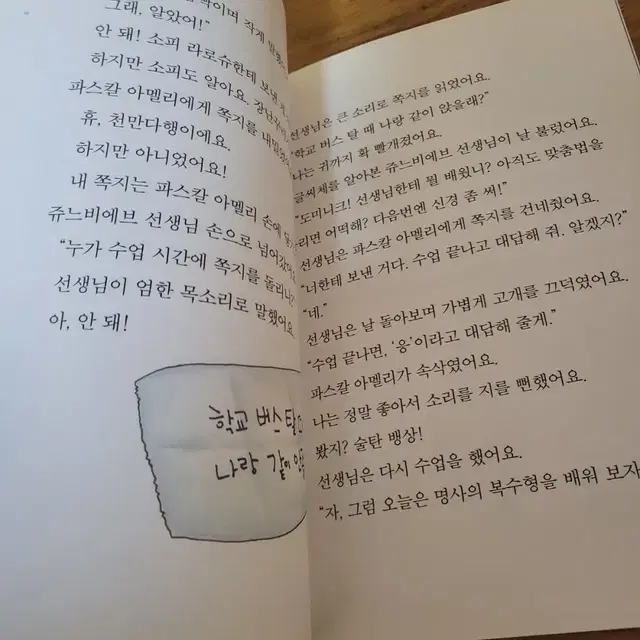 그래, 알았어!"
안 돼! 소피 라로슈한테 보낸
하지만 소피도 알아요.
파스칼 아멜리에게 쪽지를
휴, 천만다행이에요.
하지만 아니었어요!
내 쪽지는 파스칼 아멜리 손에
쥬느비에브 선생님 손으로 넘어갔어요
"누가 수업 시간에 쪽지를 돌리나?
선생님이 엄한 목소리로 말했어요
아, 안 돼!
학교 버스
나랑 같이
선생님은 큰 소리로 쪽지를 읽었어요.
"학교 버스 탈 때 나랑 같이 앉을래?"
나는 귀까지 확 빨개졌어요.
글씨체를 알아본 쥬느비에브 선생님이 날 불렀어요.
"도미니크! 선생님한테 뭘 배웠니? 아직도 맞춤법을
리면 어떡해? 다음번엔 신경 좀 써!"
선생님은 파스칼 아멜리에게 쪽지를 건네줬어요.
"너한테 보낸 거다. 수업 끝나고 대답해 줘. 알겠지?"
"네."
선생님은 날 돌아보며 가볍게 고개를 끄덕였어요.
"수업 끝나면, '응'이라고 대답해 줄게."
파스칼 아멜리가 속삭였어요.
나는 정말 좋아서 소리를 지를 뻔했어요.
봤지? 술탄 뱅상!
선생님은 다시 수업을 했어요.
"자, 그럼 오늘은 명사의 복수형을 배워 보자